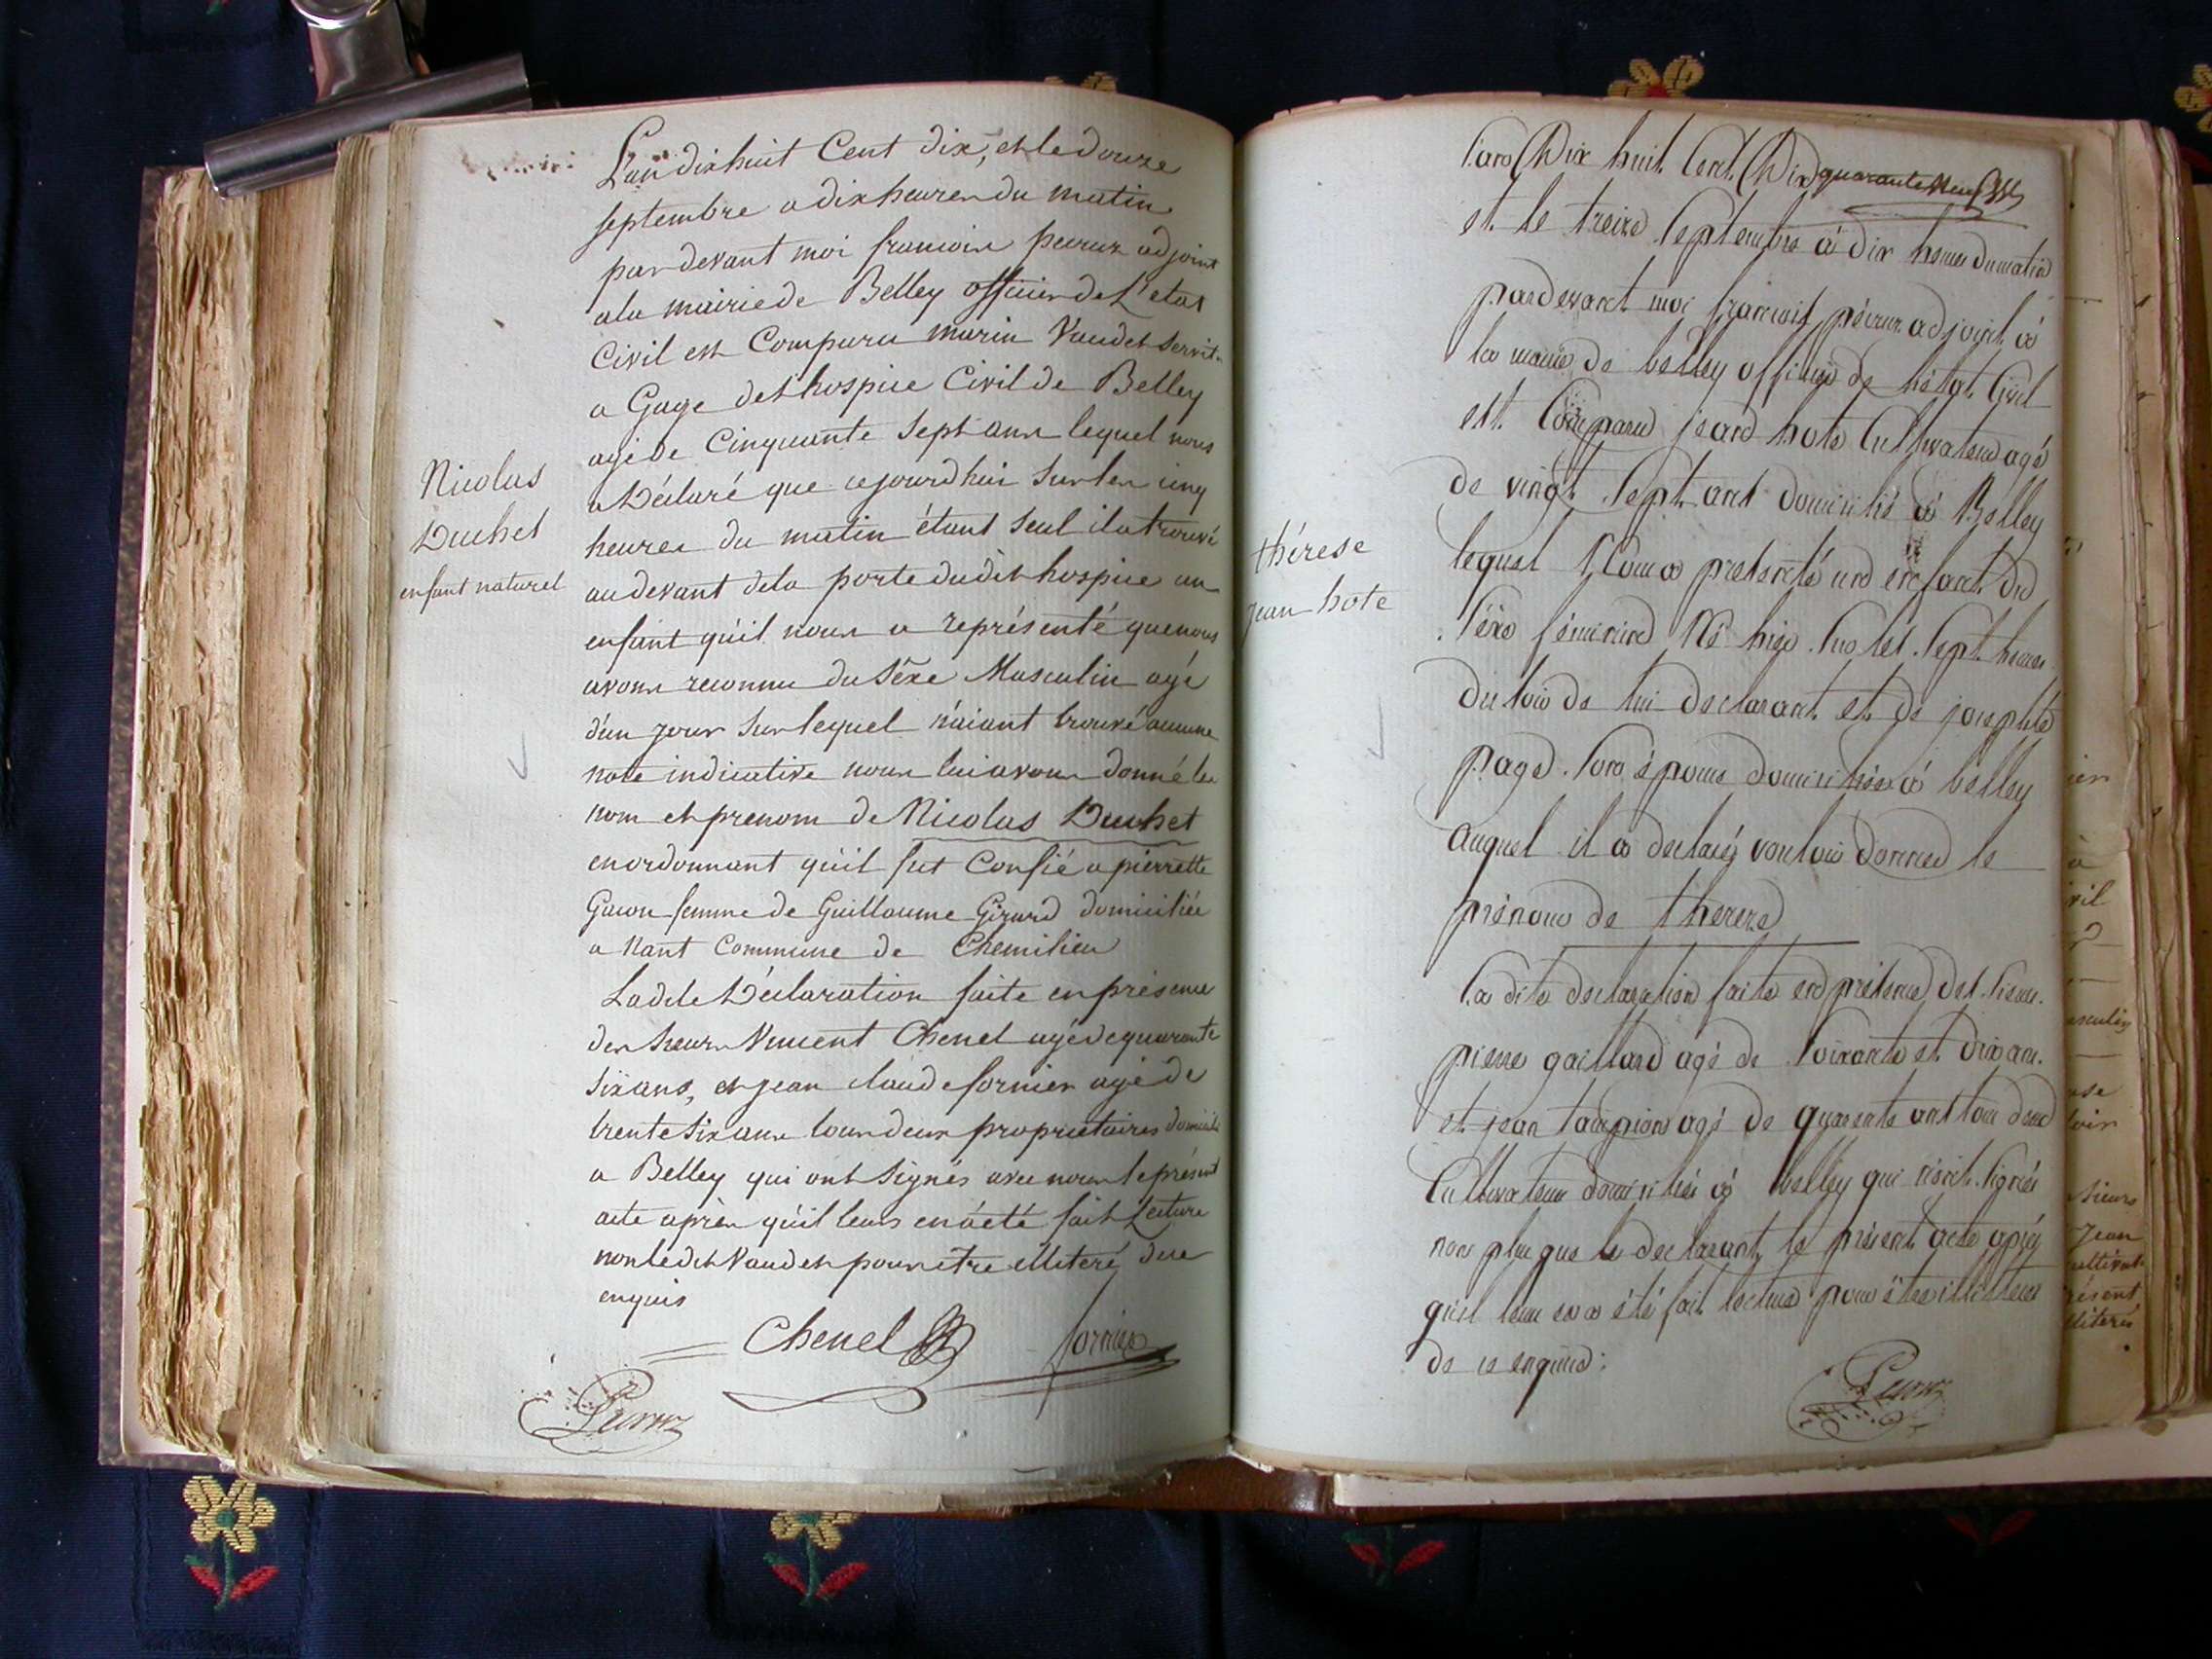 L'an dix huit Cent dix, et le douze
septembre a dix heures du matin
par devant moi francois peuvrez adjoint
a la mairie de Belley officier de L'etat
Civil est Comparu marin Vaudet servit.
a Gage de l'hospice Civil de Belley
agé de Cinquante Sept ans lequel nous
a Déclaré que cejourd'hui sur les cinq
heures du matin étant seul il a trouvé
au devant de la porte dudit hospice un
enfant qu'il nous a représenté que nous
avons reconnu du Séxe Masculin agé
d'un jour sur lequel n'aiant trouvé aucune
note indicative nous lui avons donné les
nom et prenom de Nicolas Duchet
en ordonnant qu'il fut Confié a pierrette
Gacon femme de Guillaume Girard domiciliée
a Nant Commune de Chemilieu
Ladite Déclaration faite en présence
des sieurs Vincent Chenel agé de quarante
six ans, et jean claude fornier agé de
trente six ans tous deux propriétaires domicilié
a Belley qui ont signés avec nous le présent
acte après qu'il leurs en a été fait Lecture
non ledit Vaudet pour être illiteré de ce
enquis
Chenel fornier
Nicolas
Duchet
enfant naturel
L'an Dix huit Cent Dix quarante neuf
et le treize Septembre à dix heures du matin
pardevant moi francois adjoint à
la mairie de belley officier de l'état Civil
est Comparu jean hote Cultivateur agé
de vingt Sept ans domicilié à Belley
lequel Nous a présenté un enfant du
Séxe féminin Né hier Sur les Sept heures
du soir de lui declarant et de josephte
page Son épouse domiciliée à belley
auquel il a declaré vouloir donner le
prénom de therese
La dite declaration faite en présence des Sieurs
pierre gaillard agé de Soixante et dix ans
et jean agé de quarente ans tous deux
Cultivateurs domiciliés à belley qui n'ont Signés
non plus que le declarant le présent acte après
qu'il leur en a été fait lecture pour être illitéré
de ce enquis :
thérese
jean hote